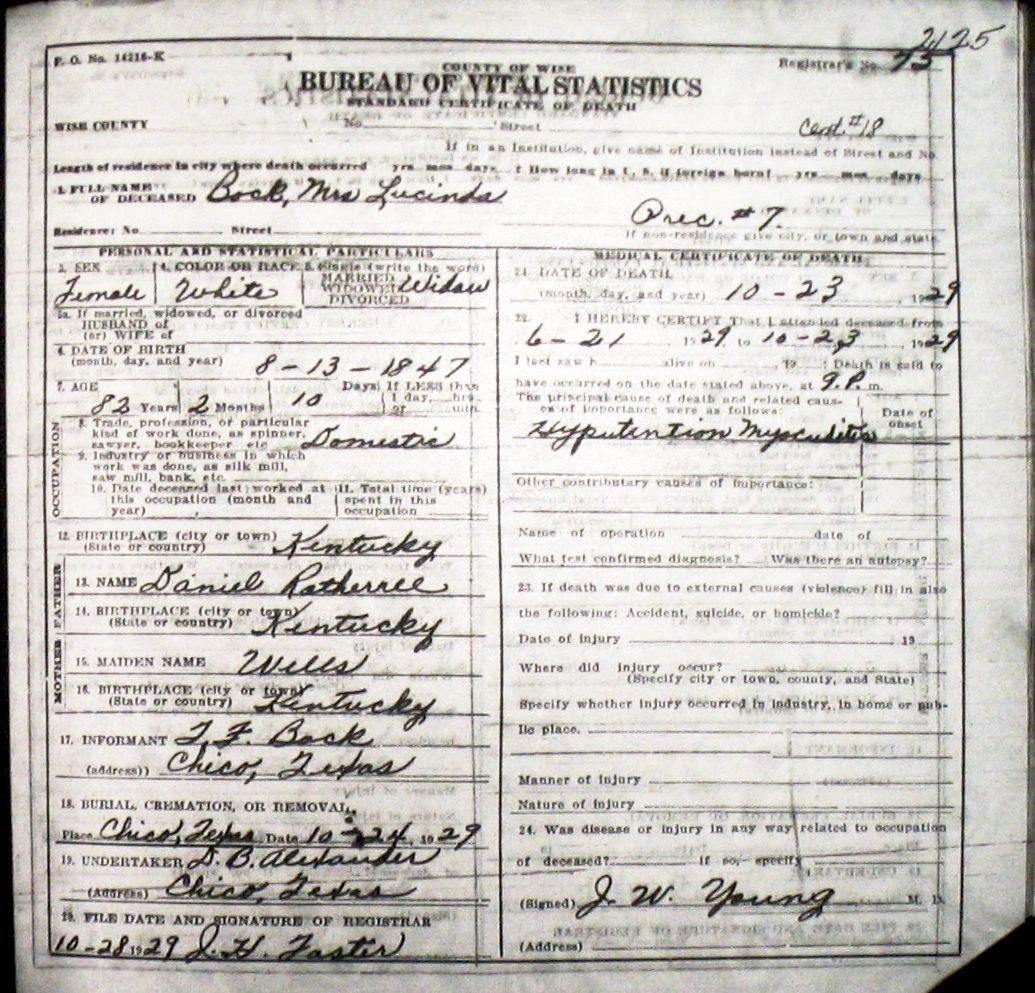 2125
P. O. No. 14216-K
COUNTY OF WISE
Registrar's No. 73
BUREAU OF VITAL STATISTICS
STANDARD CERTIFICATE OF DEATH
WISE COUNTY
No. Street
Cent #18
If in an Institution, give name of Institution instead of Street and No.
Length of residence in city where death occurred yrs mos days. How long in U. S. if foreign born? yrs mos days
1. FULL NAME OF DECEASED Bock, Mrs Lucinda
Prec. #7.
Residence: No Street
If non-residence give city, or town and state
PERSONAL AND STATISTICAL PARTICULARS
3. SEX Female
4. COLOR OR RACE White
5. Single (write the word)
MARRIED
WIDOWED Widow
DIVORCED
5a. If married, widowed, or divorced
HUSBAND of
(or) WIFE of
6. DATE OF BIRTH
(month, day, and year) 8-13-1847
7. AGE Days If LESS than
82 Years 2 Months 10 1 day, hrs.
or min.
OCCUPATION
8. Trade, profession, or particular
kind of work done, as spinner,
sawyer, bookkeeper etc Domestic
9. Industry or business in which
work was done, as silk mill,
saw mill, bank, etc.
10. Date deceased last worked at
this occupation (month and
year)
11. Total time (years)
spent in this
occupation
12. BIRTHPLACE (city or town)
(State or country) Kentucky
FATHER
13. NAME Daniel Ratherree
14. BIRTHPLACE (city or town)
(State or country) Kentucky
MOTHER
15. MAIDEN NAME Wills
16. BIRTHPLACE (city or town)
(State or country) Kentucky
17. INFORMANT T. F. Bock
(address)) Chico, Texas
18. BURIAL, CREMATION, OR REMOVAL,
Place Chico, Texas Date 10-24, 1929
19. UNDERTAKER D. B. Alexander
(Address) Chico, Texas
20. FILE DATE AND SIGNATURE OF REGISTRAR
10-28 1929 J. H. Faster
MEDICAL CERTIFICATE OF DEATH
21. DATE OF DEATH
(month, day, and year) 10-23, 1929
22. I HEREBY CERTIFY That I attended deceased from
6-21 1929 to 10-23, 1929
I last saw h alive on , 19 ; Death is said to
have occurred on the date stated above, at 9.P.m.
The principal cause of death and related causes of importance were as follows:
Date of onset
Hypertention Myocarditis
Other contributary causes of importance:
Name of operation date of
What test confirmed diagnosis? Was there an autopsy?
23. If death was due to external causes (violence) fill in also
the following: Accident, suicide, or homicide?
Date of injury 19
Where did injury occur?
(Specify city or town, county, and State)
Specify whether injury occurred in industry, in home or pub-
lic place.
Manner of injury
Nature of injury
24. Was disease or injury in any way related to occupation
of deceased? if so, specify
(Signed) J. W. Young M. D.
(Address)